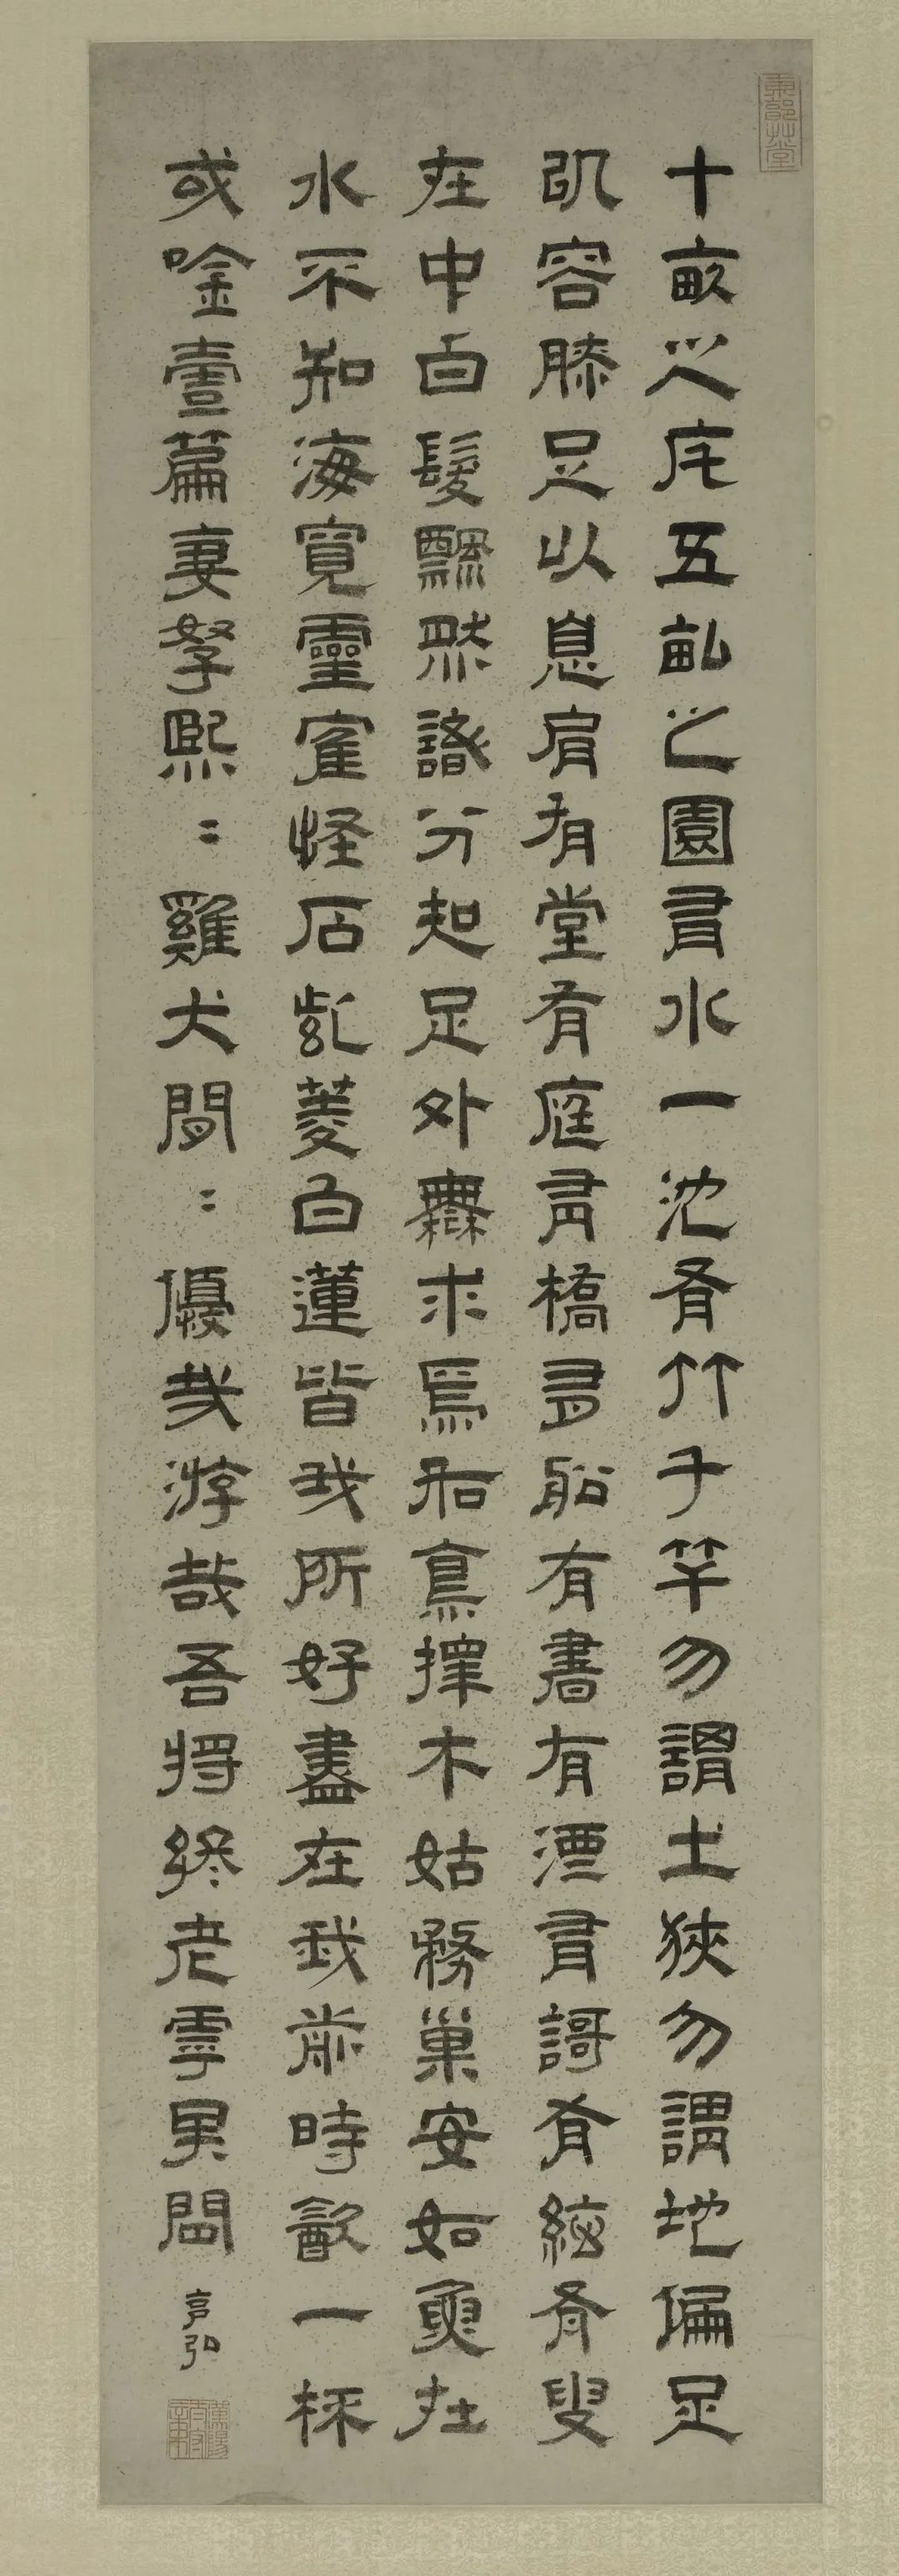 東郭草堂
十畝之宅五畝之園有水一池有竹千竿勿謂土狹勿謂地偏足
以容膝足以息肩有堂有庭有橋有船有書有酒有謌有絃有叟
在中白髮飄然識分知足外無求焉如鳥擇木姑務巢安如魚在
水不知海寬靈寉怪石紫菱白蓮皆我所好盡在我前時飲一杯
或唫壹篇妻孥熙〻雞犬閒〻優哉游哉吾將終老乎其間